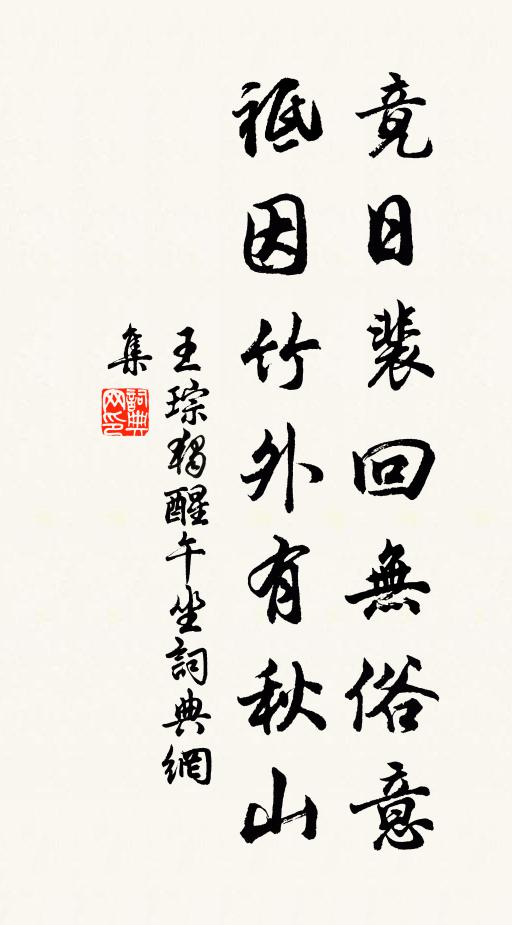 竟日裴回無俗意
祗因竹外有秋山
王琮獨醒午坐詞典網
集
詞典網印